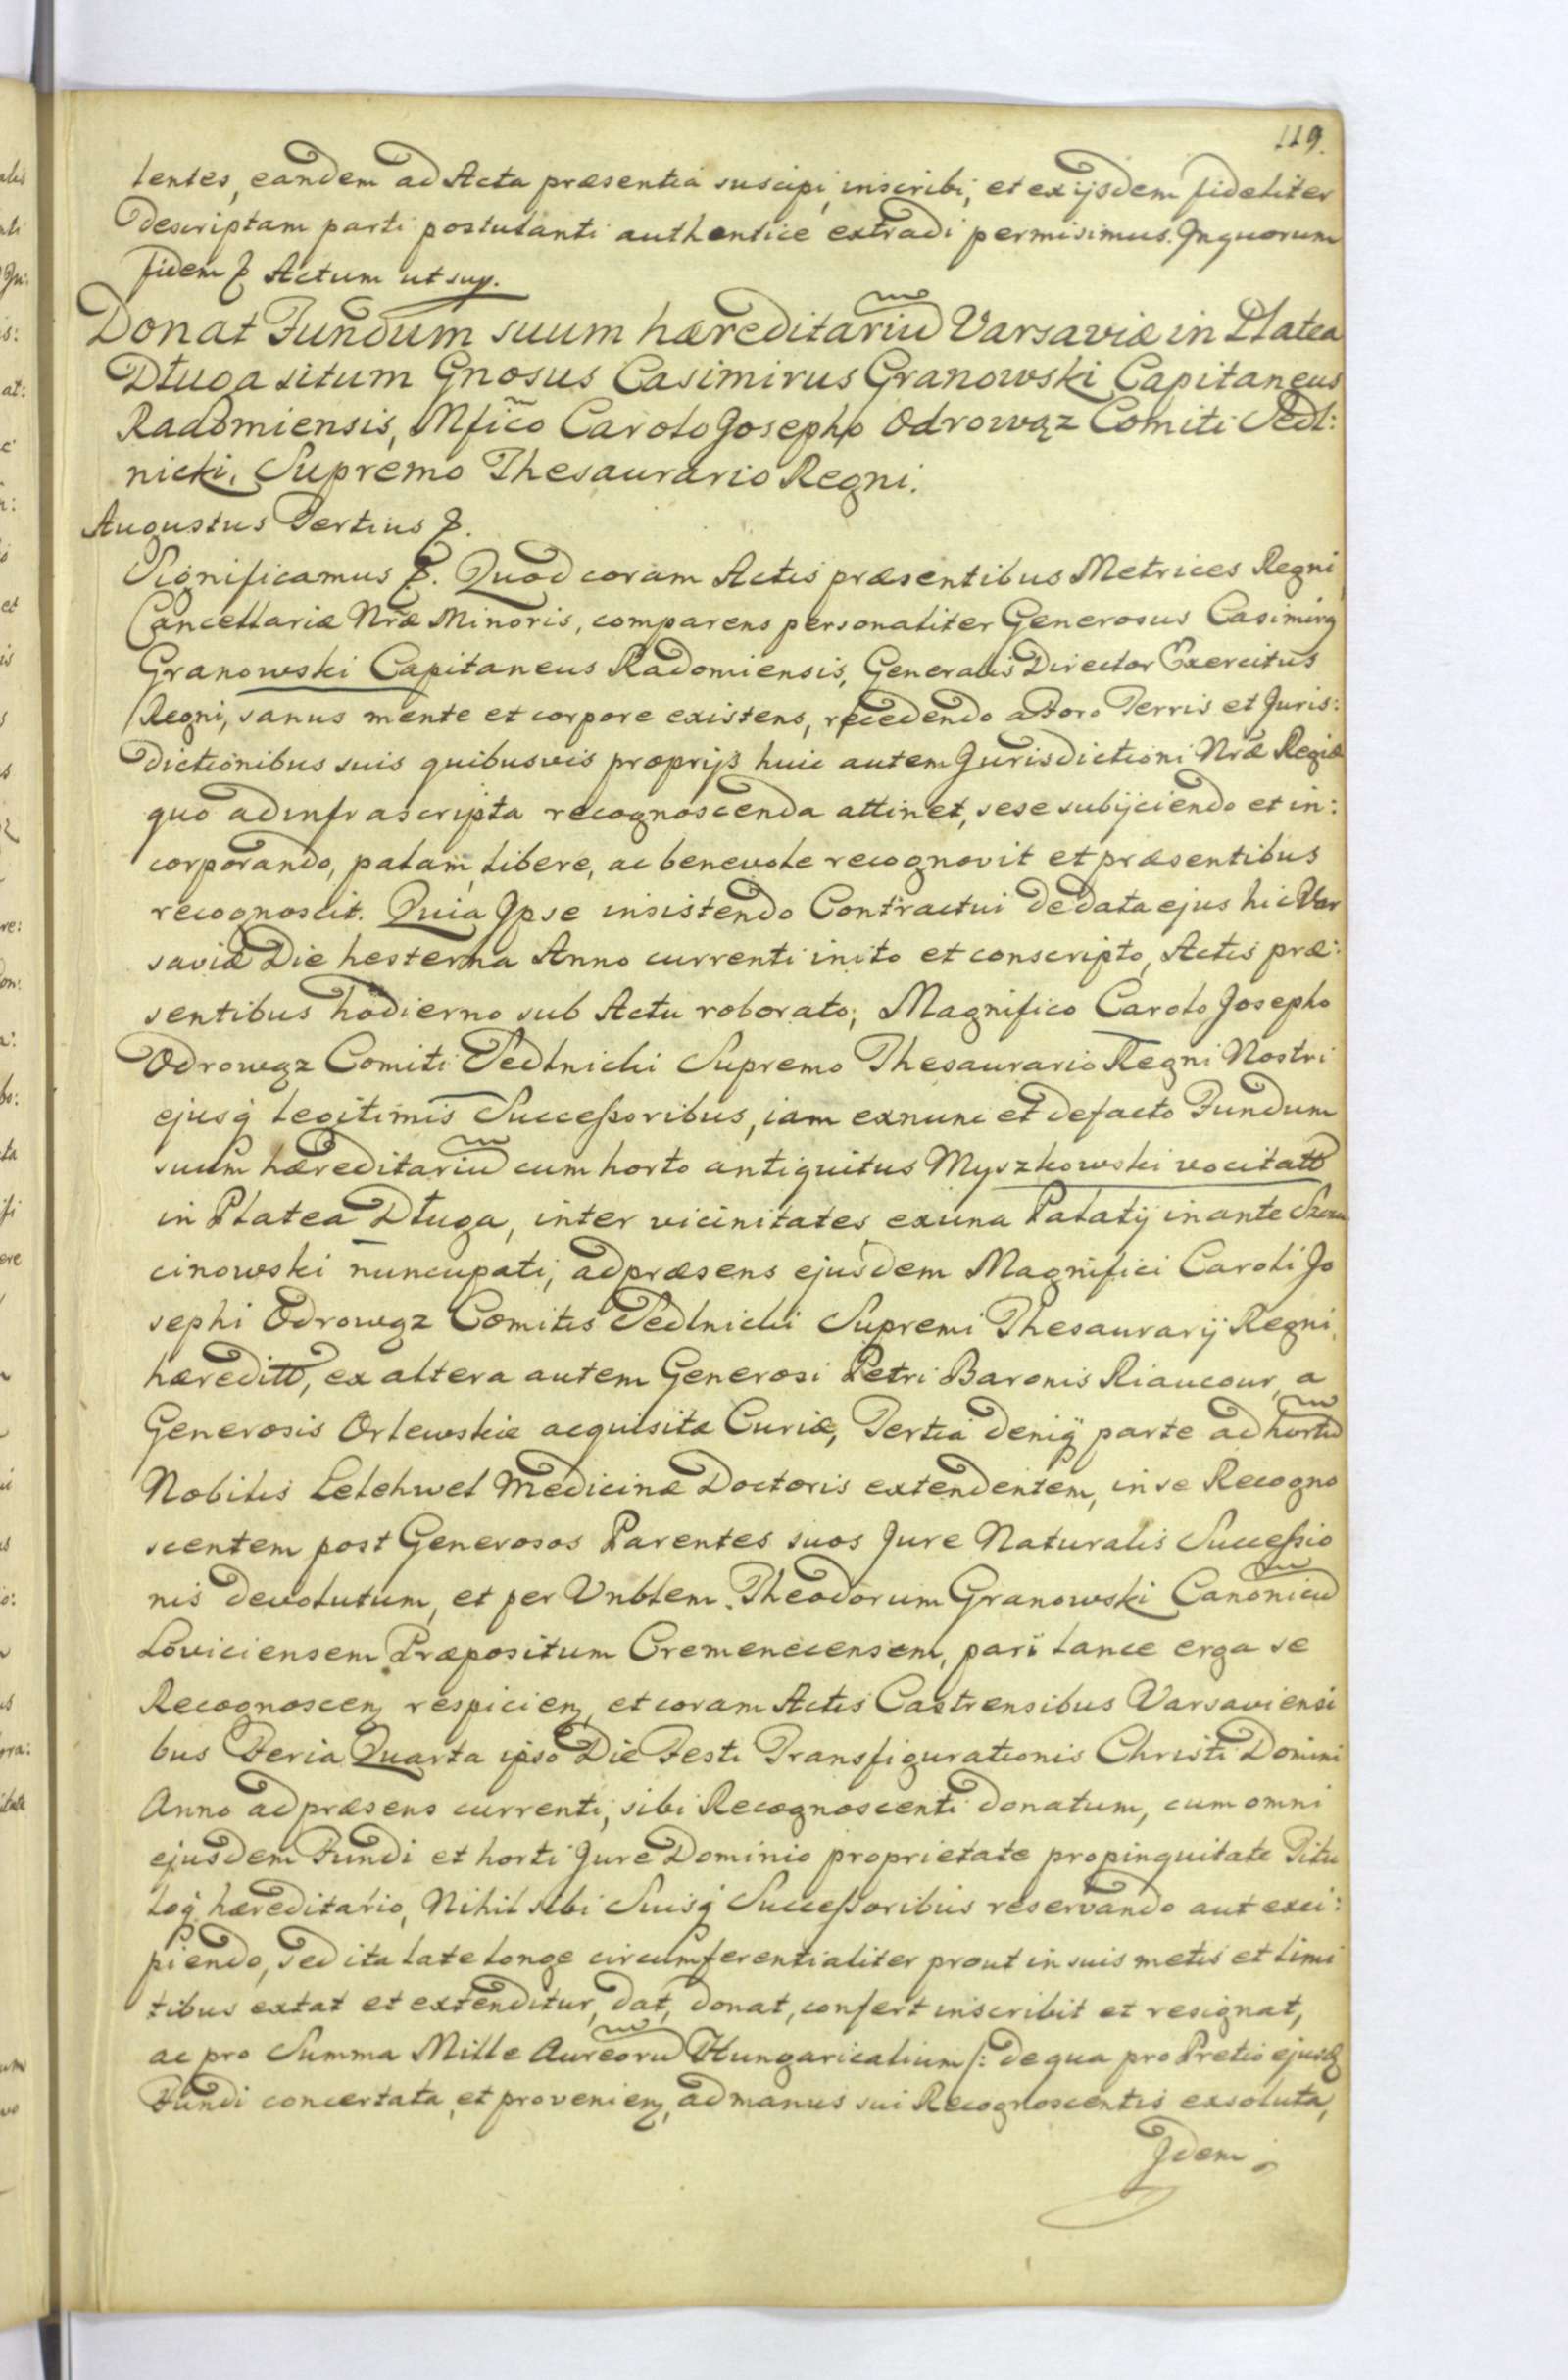 119.
tentes, eandem ad Acta præsentia suscipi, inscribi, et ex ijsdem fideliter
descriptam parti postulanti authentice extradi permisimus. In quorum
fidem &. Actum ut sup.
Donat Fundum suum hæreditariũ Varsaviæ in Platea
Długa situm Gnosus Casimirus Granowski Capitaneus
Radomiensis, Mfico Carolo Josepho Odrowąz Comiti Sedl:
nicki, Supremo Thesaurario Regni.
Augustus Tertius &.
Significamus &. Quod coram Actis præsentibus Metrices Regni
Cancellariæ Nræ Minoris, comparens personaliter Generosus Casimirꝰ
Granowski Capitaneus Radomiensis, Generalis Director Exercitus
Regni, sanus mente et corpore existens, recedendo a Foro Terris et Juris:
dictionibus suis quibusvis proprijs huic autem Jurisdictioni Nræ Regiæ
quo ad infrascripta recognoscenda attinet, sese subijciendo et in:
corporando, palam, libere, ac benevole recognovit et præsentibus
recognoscit. Quia Ipse insistendo Contractui de data ejus hic Var
saviæ Die hesterna Anno currenti inito et conscripto, Actis præ:
sentibus hodierno sub Actu roborato; Magnifico Carolo Josepho
Odrowąz Comiti Sedlnicki Supremo Thesaurario Regni Nostri
ejusq́ legitimis Successoribus, iam exnunc et defacto Fundum
suum hæreditariũ cum horto antiquitus Myszkowski vocitatt
in Platea Długa, inter vicinitates exuna Palatij in ante
cinowski nuncupati, ad præsens ejusdem Magnifici Caroli Jo
sephi Odrowąz Comitis Sedlnicki Supremi Thesaurarij Regni,
hæreditt, ex altera autem Generosi Petri Baronis Riaucour, a
Generosis Orlewskie acquisitæ Curiæ, Tertia deniq́ parte ad hortũ
Nobilis Lelehwel Medicinæ Doctoris extendentem, in se Recogno
scentem post Generosos Parentes suos Jure Naturalis Successio
nis devolutum, et per Vnblem. Theodorum Granowski Canonicũ
Loviciensem Præpositum Cremenecensem, pari lance erga se
Recognoscenꝫ respicienꝫ, et coram Actis Castrensibus Varsaviensi
bus Feria Quarta ipso Die Festi Transfigurationis Christi Domini
Anno ad præsens currenti, sibi Recognoscenti donatum, cum omni
ejusdem Fundi et horti Jure Dominio proprietate propinquitate Titu
loq́ hæreditario, Nihil sibi Suisq́ Successoribus reservando aut exci:
piendo, sed ita late longe circumferentialiter prout in suis metis et limi
tibus extat et extenditur, dat, donat, confert inscribit et resignat,
ac pro Summa Mille Aureorũ Hungaricalium /: de qua pro Pretio ejusdꝫ
Fundi concertata, et provenienꝫ, ad manus sui Recognoscentis exsoluta,
Idem